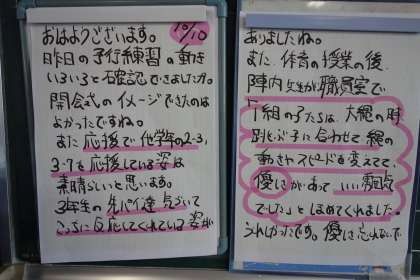 おはようございます。
10/10
昨日の予行練習の動き
いろいろと確認できましたか。
開会式のイメージできたのは
よかったですね。
また応援で他学年の2-3、
3-7を応援している姿は
素晴らしいと思います。
3年生の先パイ達気づいて
こっちに反応してくれている姿が
ありましたね。
また、体育の授業の後、
陣内先生が職員室で
「1組の子たちは、大縄の時
跳とぶ子に合わせて縄の
動きやスピードを変えてて、
優しさがあって、いい雰囲気
でした」とほめてくれました。
うれしかったです。優しさ忘れないで